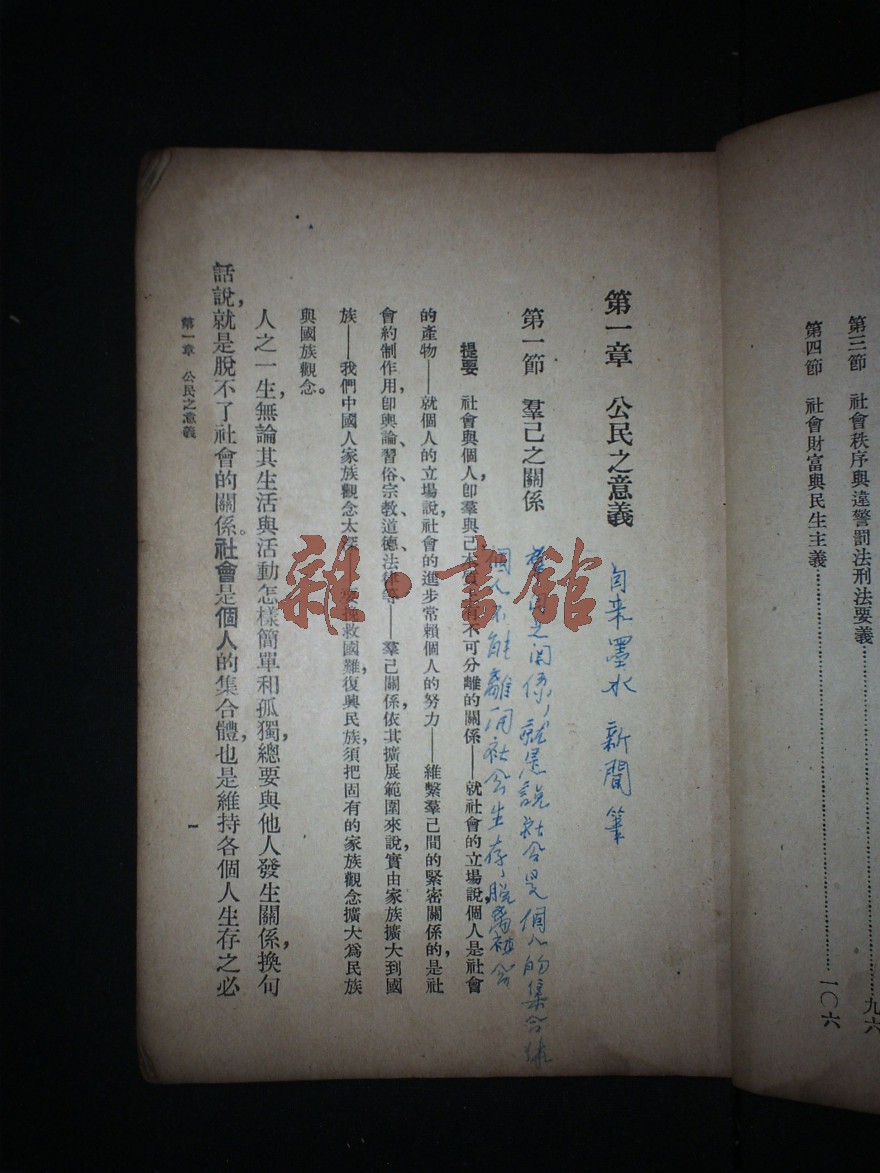 第三節　社會秩序與違警罰法刑法要義……九六
第四節　社會財富與民生主義……一〇六
第一章　公民之意義
自来墨水　新聞筆
第一節　羣己之關係
之関係，就是説社会是個人的集合体
個人不能離開社会生存，脱离社会
提要　社會與個人，即羣與己不可分離的關係——就社會的立場說，個人是社會
的產物——就個人的立場說，社會的進步常賴個人的努力——維繫羣己間的緊密關係的，是社
會約制作用，即輿論、習俗、宗教、道德、法律等——羣己關係，依其擴展範圍來說，實由家族擴大到國
族——我們中國人家族觀念太深，救國難，復興民族，須把固有的家族觀念擴大爲民族
與國族觀念。
人之一生，無論其生活與活動怎樣簡單和孤獨，總要與他人發生關係，換句
話說，就是脫不了社會的關係。社會是個人的集合體，也是維持各個人生存之必
第一章　公民之意義
一
雜·書館